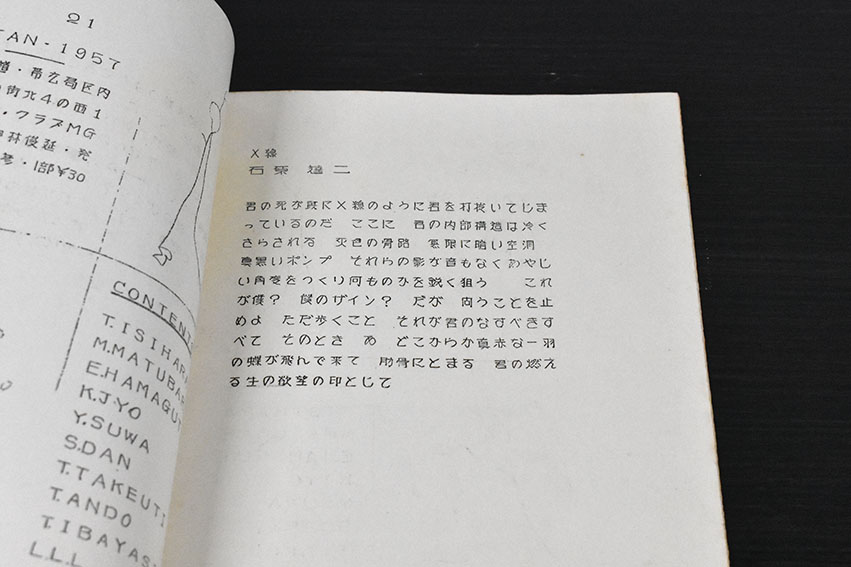 21
TAN-1957
・帯広局区内
街北4の西1
・クラブMG
林俊延・発
・1部¥30
CONTENT
T.ISIHARA
M.MATUBA
E.HAMAGU
K.JYO
Y.SUWA
S.DAN
T.TAKEUTI
T.ANDO
T.IBAYAS
L.L.L
X線
石原 達二
君の死が既にX線のように君を打抜いてしま
っているのだ ここに 君の内部構造は冷く
さらされる 灰色の骨骼 無限に暗い空洞
真黒いポンプ それらの影が音もなくあやし
い陶壺をつくり何ものかを鋭く狙う これ
が僕? 僕のザイン? だが 問うことを止
めよ ただ歩くこと それが君のなすべきす
べて そのとき あ どこからか真赤な一羽
の蝶が飛んで来て 肋骨にとまる 君の燃え
る生の欲望の印として